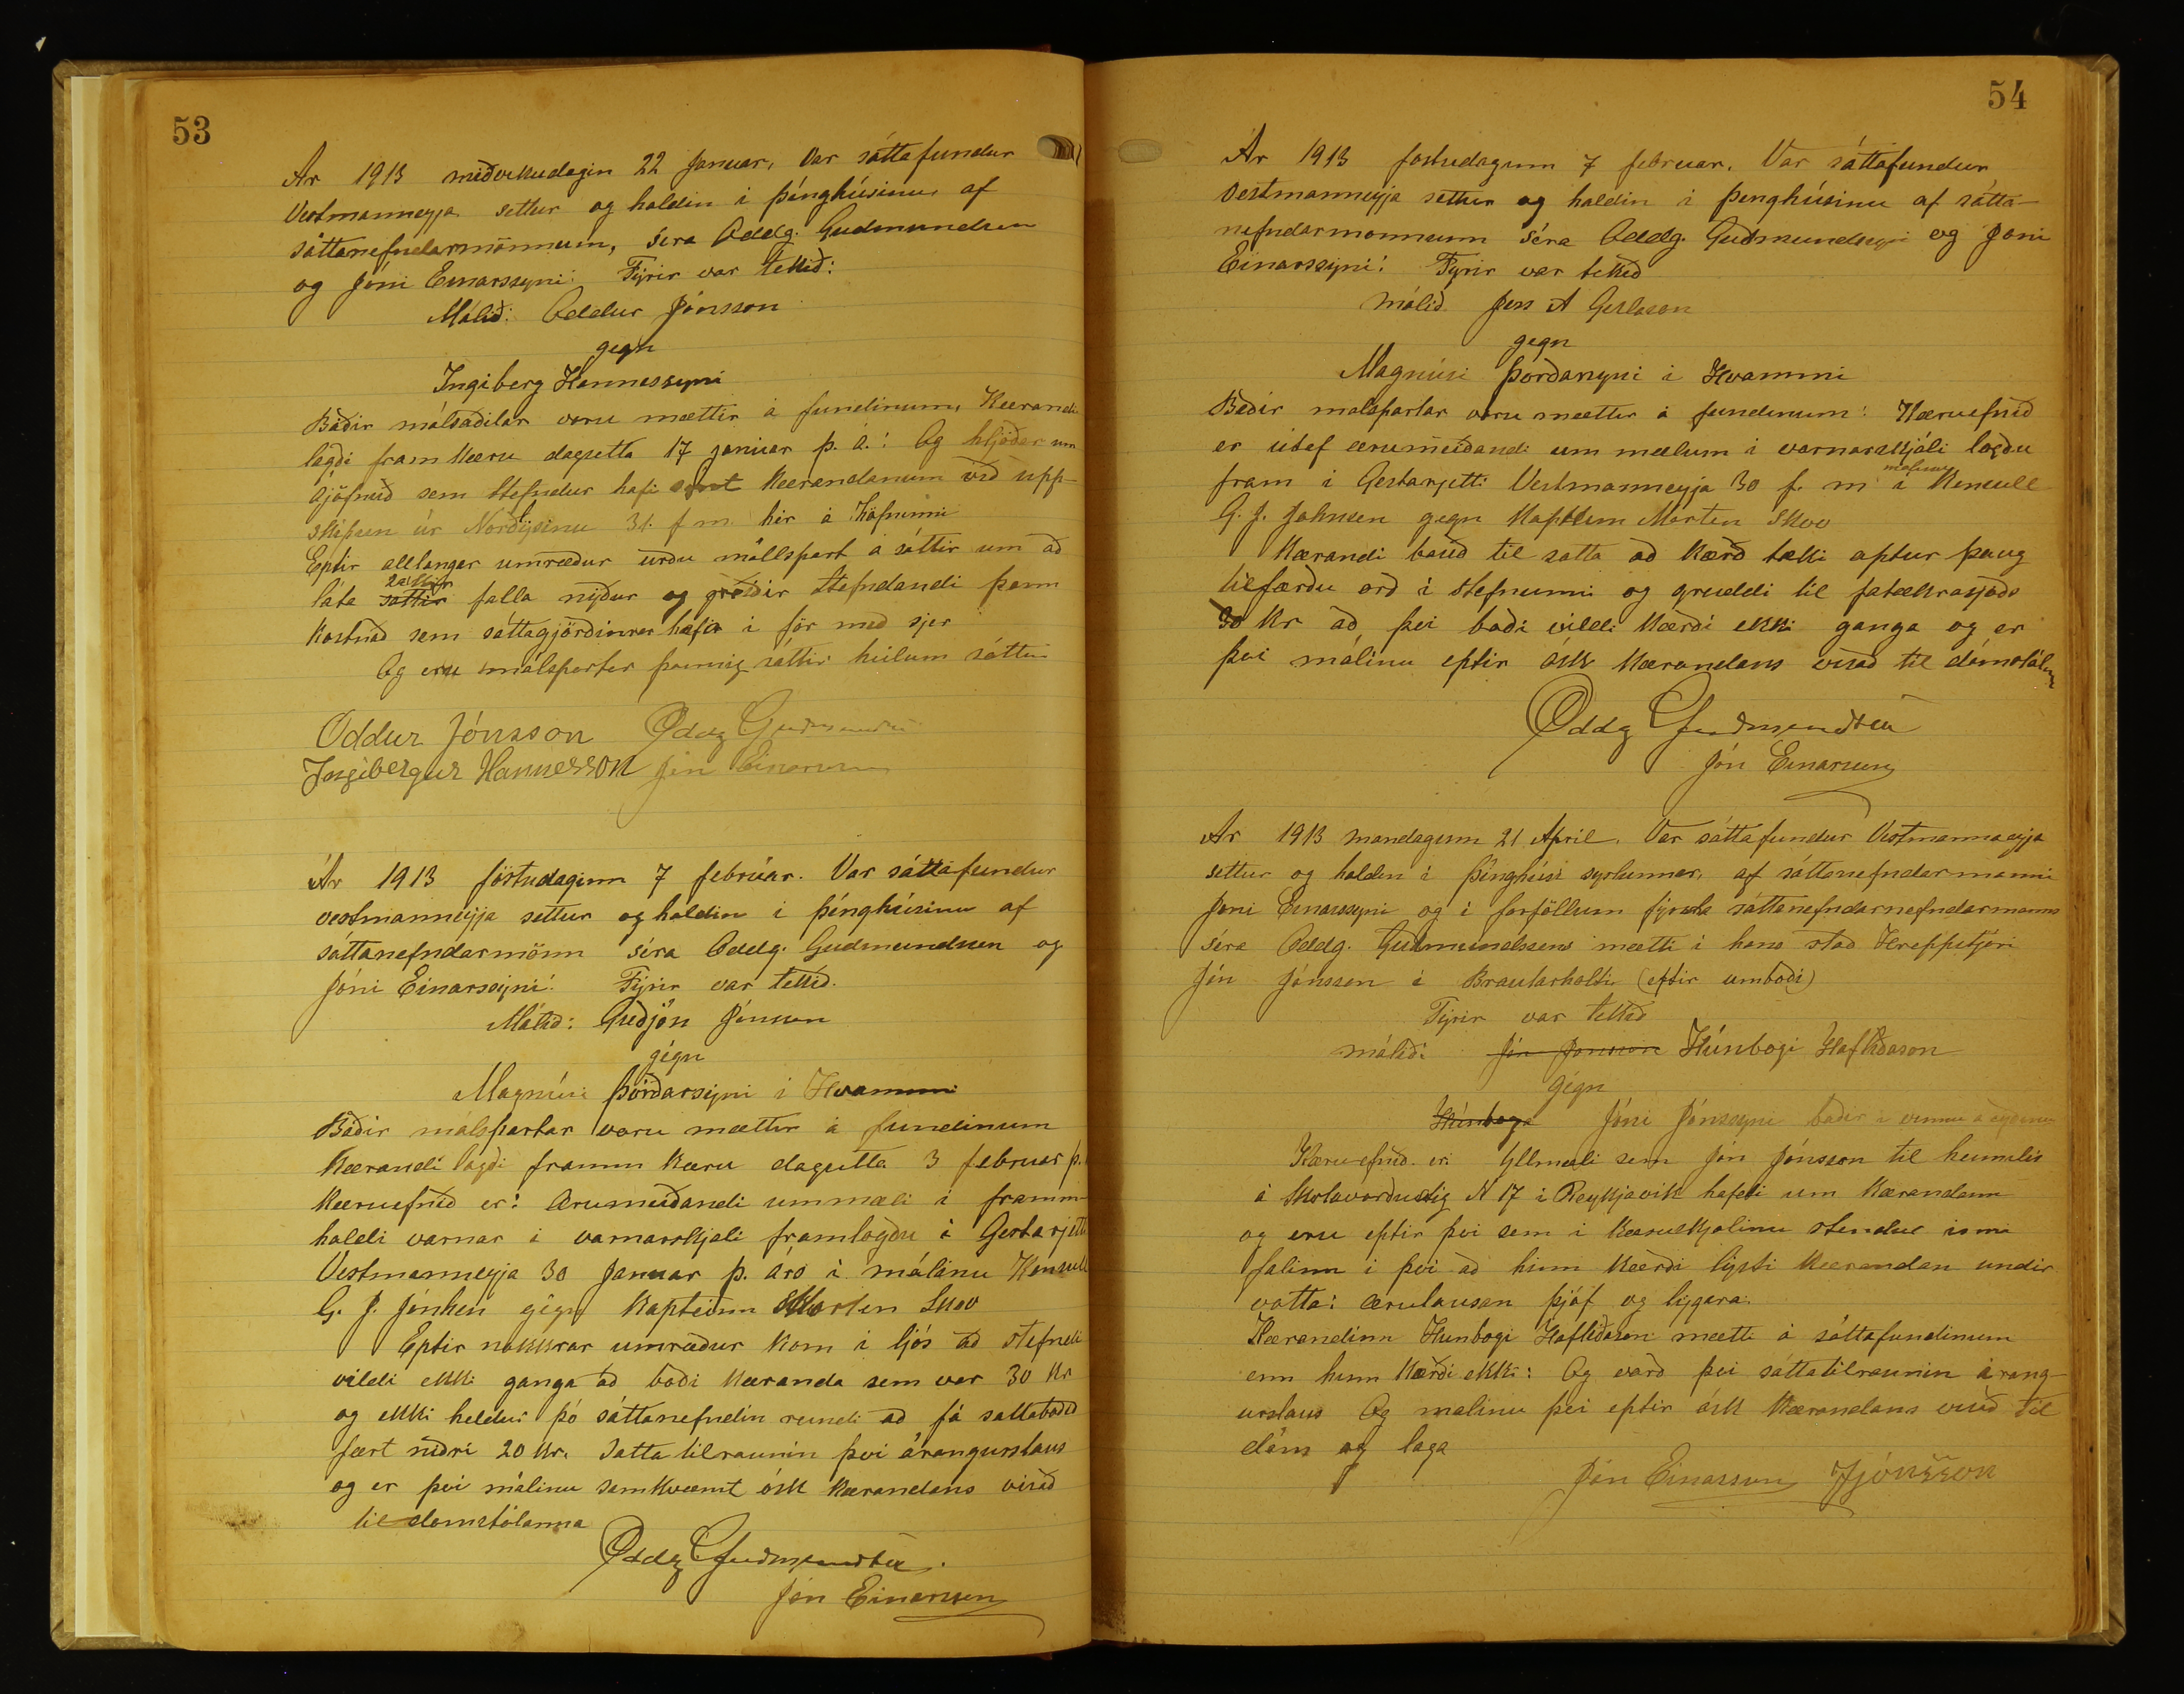 53
Ár 1913 miðvikudagin 22 Januar, Var sáttafundur
Vestmanneyja settur og haldin i þinghúsinu af
sáttanefndarmönnum, séra Oddg. Guðmundsen
og Jóni Einarssyni: Fýrir var tekið:
Málið: Oddur Jónsson
gegn
Ingiberg Hannessyni
Báðir málsaðilar voru mættir á fundinum, Kærandi
lagði fram kæru dagsetta 17 januar þ. á.: Og hljóðar um
ójöfnuð sem stefndur hafi synt kærandanum við upp-
skipun úr Norðýsinu 31. f m. hér á höfninni
Eptir allangar umræður urðu málspart á sáttir um að
láta sakir falla niður og greiðir stefndandi þann
kostnað sem sáttagjörðinrar hafa i för með sjer
Og eru málspartar þannig sáttir heilum sáttum
Oddur Jónsson Oddg Guðmundsen
Ingibergur Hannesson Jón Einarsson
Ár 1913 föstudaginn 7 febrúar. Var sáttafundur
vestmanneyja settur og haldin i þinghúsinu af
sáttanefndarmönn séra Oddg. Guðmundsen og
Jóni Einarssyni: Fýrir var tekið.
Málið: Guðjón Jónsson
gégn
Magnúsi Þórðarsyni i Hvammi
Báðir málspartar voru mættir á fundinum
Kærandi lagði framm kæru dagsetta 3 februar þ.
kæruefnið er: ærumeiðandi ummæli i framm-
haldi varnar i varnarskjali framlögðu i Gestarjetti
Vestmanneyja 30 Januar þ. árs i málinu Konsull
G. J. Jónhsen gégn Kapteinn Morten Skov
Eptir nokkrar umræður kom i ljós að stefndi
vildi ekki ganga að boði kæranda sem var 30 kr
og ekki heldur þó sáttanefndin reundi að fá sattaboðið
fært niðri 20 kr. Satta tilraunin þvi árangurslaus
og er þvi málinu samkvæmt ósk kærandans visað
til domstólanna
Oddg Guðmundsen.
Jón Einarsson
54
Ár 1913 fostudagunn 7 februar. Var sáttafundur
Vestmanneyja settur og haldin i þinghúsinu af sátta-
nefndarmonnunn séra Oddg. Guðmundseyni og Joni
Einarssyni: Fyrir var tekið
málið Jes A Gíslason
gegn
Magnúsi Þórðarsyni i Hvammi
Báðir malspartar voru mættir á fundinum: Kæruefnið
er útaf ærumeiðandi um mælum i varnarskjali logðu
fram i Gestarjetti Vestmanneyja 30 f. m i málinu Konsull
G. J. Johnsen gegn Kaptein Morten Skov
Kærandi bauð til satta að kærð tæki aptur þaug
tilfærðu orð i stefnunni og greiddi til fatækrasjóðs
30 kr að þvi boði vildi kærði ekki ganga og er
þvi málinu eftir ósk kærandans visað til dómstólan
Oddg Guðmundsen
Jón Einarsson
Ár 1913 mandagunn 21 April. Var sáttafundur Vestmannaeyja
settur og haldin i þinghúsi syslunnar, af sáttanefndarmanni
Joni Einarssyni og i forföllum fýrsta sáttanefndarnefndarmanns
séra Oddg. Guðmundssens mætti i hans stað Hreppstjóri
Jón Jónsson i Brautarholti (eftir umboði)
Fýrir var tekið
málið: Jón Jonsson Húnbogi Hafliðason
Gégn
Húnboga Jóni Jónssyni baðir i vinnu á eyjunni
Kæruefnið er: Yllmæli sem Jón Jónsson til heimilis
á Skolavorðustig N 17 i Reykjavik hafdi um kærandann
og eru eptir þvi sem i kæruskjalinu stendur
falinn i þvi að hinn kærði lýsti kærandan undir
votta: ærulausan þjóf og lygara.
Kærandinn Hunbogi Hafliðason mætti á sáttafundinum
enn hinn kærði ekki: Og varð þvi sáttatilraunin árang-
urslaus Og malinu þvi eptir ósk kærandans visað til
dóms og laga
Jón Einarsson JJónsson